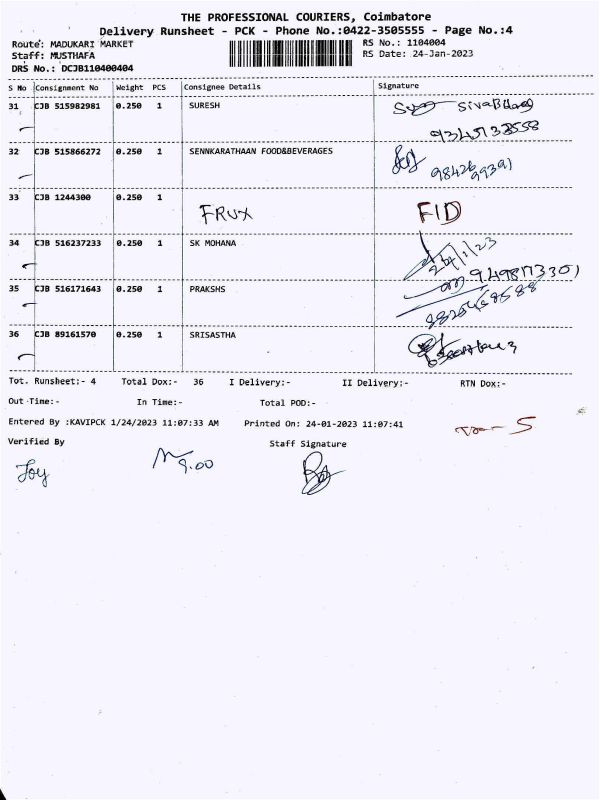 THE PROFESSIONAL COURIERS, Coimbatore
Delivery Runsheet - PCK - Phone No.:0422-3505555 - Page No.:4
Route: MADUKARI MARKET RS No.: 1104004
Staff: MUSTHAFA RS Date: 24-Jan-2023
DRS No.: DCJB110400404
S No Consignment No Weight PCS Consignee Details Signature
31 CJB 515982981 0.250 1 SURESH
32 CJB 515866272 0.250 1 SENNKARATHAAN FOOD&BEVERAGES
33 CJB 1244300 0.250 1 FRUX FID
34 CJB 516237233 0.250 1 SK MOHANA 24/1/23
35 CJB 516171643 0.250 1 PRAKSHS
36 CJB 89161570 0.250 1 SRISASTHA
Tot. Runsheet:- 4 Total Dox:- 36 I Delivery:- II Delivery:- RTN Dox:-
Out Time:- In Time:- Total POD:-
Entered By :KAVIPCK 1/24/2023 11:07:33 AM Printed On: 24-01-2023 11:07:41
Verified By Staff Signature
Joy 9.00